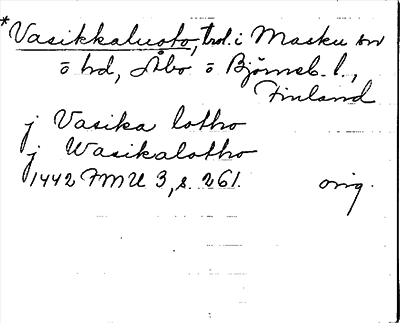 *Vasikkaluoto, trol. i Masku sn
o hd, Åbo o Björneb. l.,
Finland
j Vasika lotho
j Wasikalotho
1442 FMU 3, s. 261. orig.